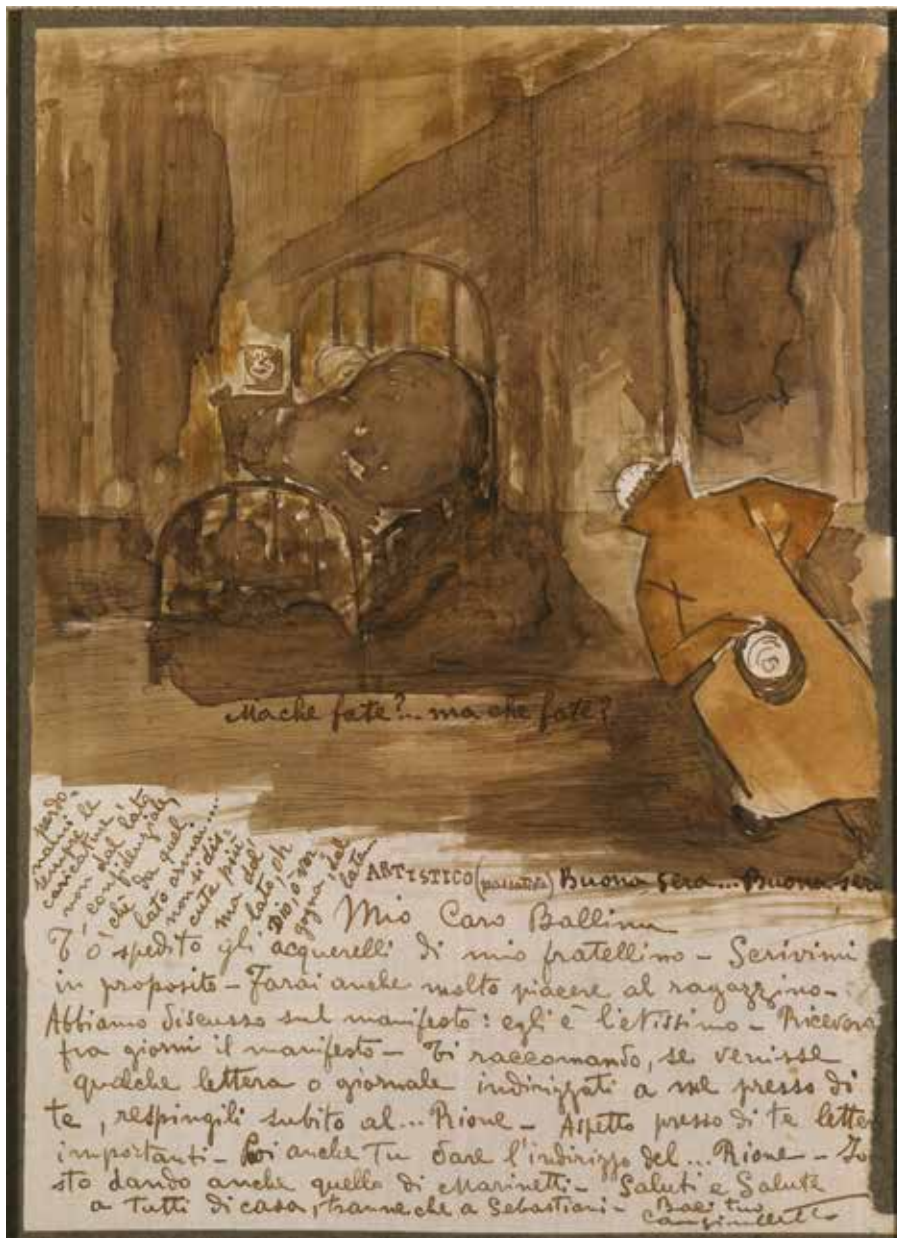 Ma che fate?... ma che fate?
perdo-
nami
sempre le
caricature,
non dal lato
confidenziale,
chè da quel
lato ormai...
non si dis-
cute più
ma del
lato, oh
Dio, ò ver
gogna, sol
lato...
ARTISTICO (passatista) Buona sera... Buona sera
Mio Caro Ballinu
T'ò spedito gli acquerelli di mio fratellino - Scrivimi
in proposito - Farai anche molto piacere al ragazzino -
Abbiamo discusso sul manifesto: egli è lietissimo - Riceverai
fra giorni il manifesto - Ti raccomando, se venisse
qualche lettera o giornale indirizzati a me presso di
te, respingili subito al... Rione - Aspetto presso di te lettere
importanti - Poi anche Tu dare l'indirizzo del... Rione - Io
sto dando anche quello di Marinetti - Saluti e Salute
a Tutti di casa, tranne che a Sebastiani - Baci tuo
Cangiullo